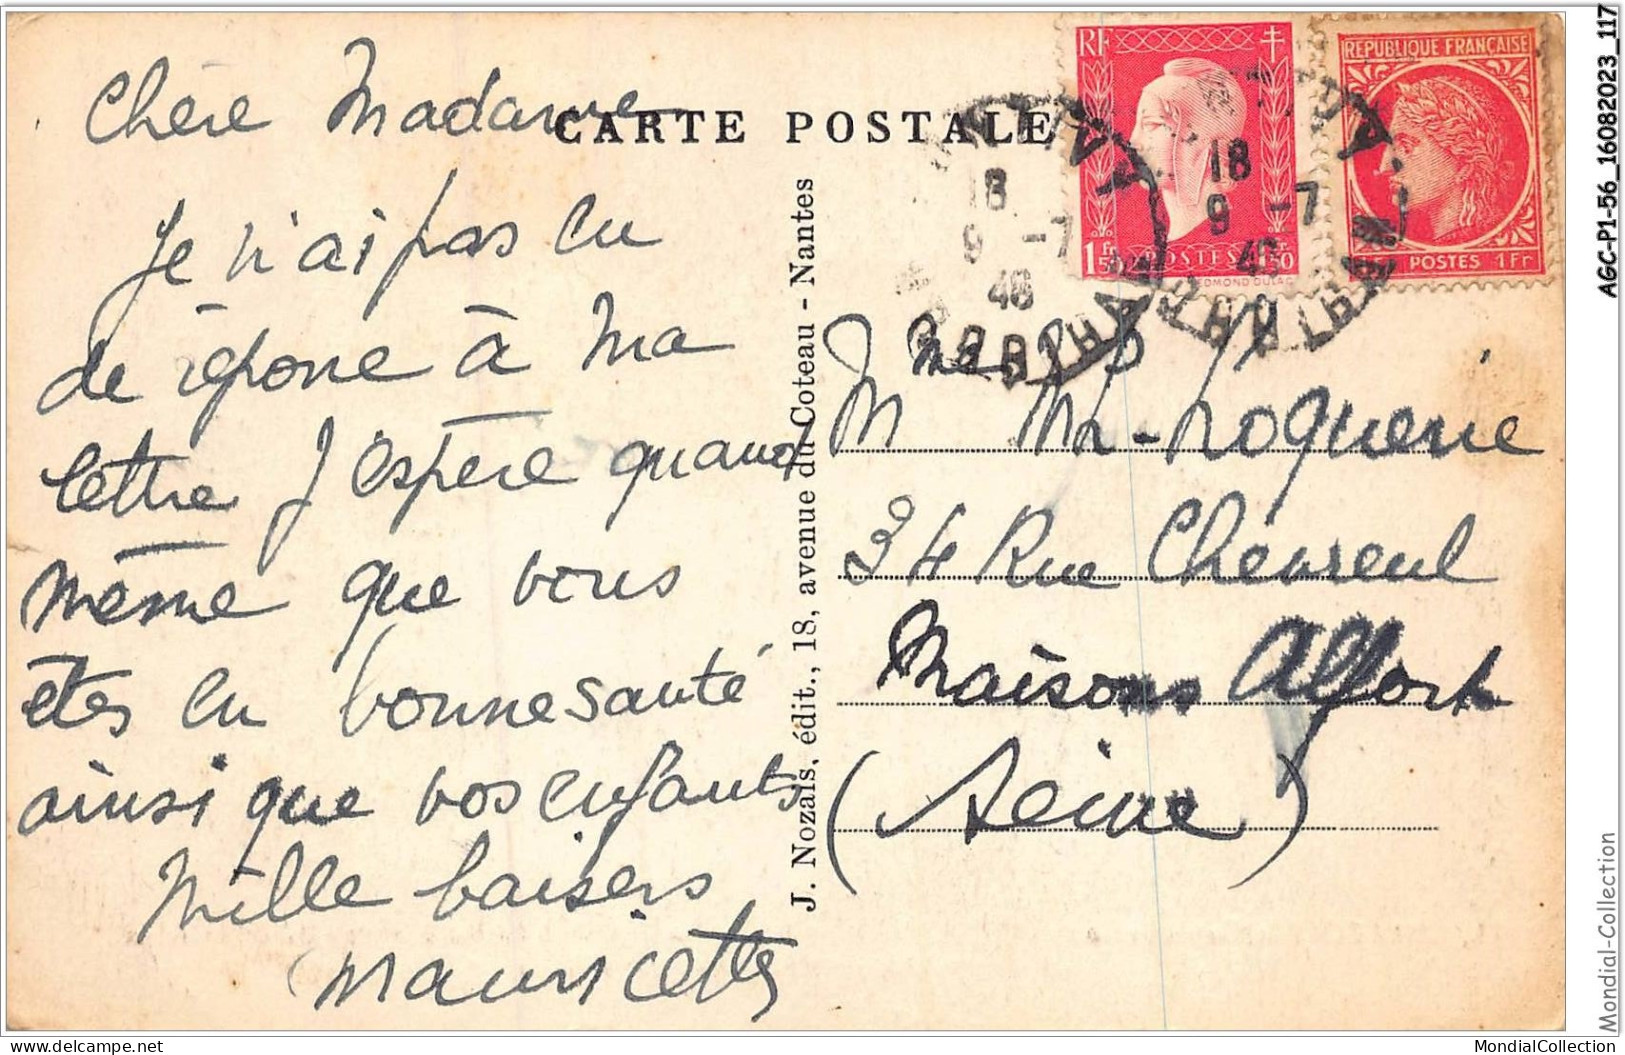 Chère Madame
Je n'ai pas eu
de réponse à ma
lettre J'espère quand
même que vous
êtes en bonne santé
ainsi que vos enfants
Mille baisers
Mauricette
CARTE POSTALE
J. Nozais, édit., 18, avenue du Coteau - Nantes
RF
1 Fr 50
POSTES
1 Fr 50
EDMOND DULAC
REPUBLIQUE FRANÇAISE
POSTES 1Fr
18
9 -7
46
18
9 -7
46
MORBIHAN
MORBIHAN
M
Noquerie
34 Rue Chevreul
Maisons Alfort
(Seine)
AGC-P1-56_16082023_117
Mondial-Collection
delcampe.net
MondialCollection